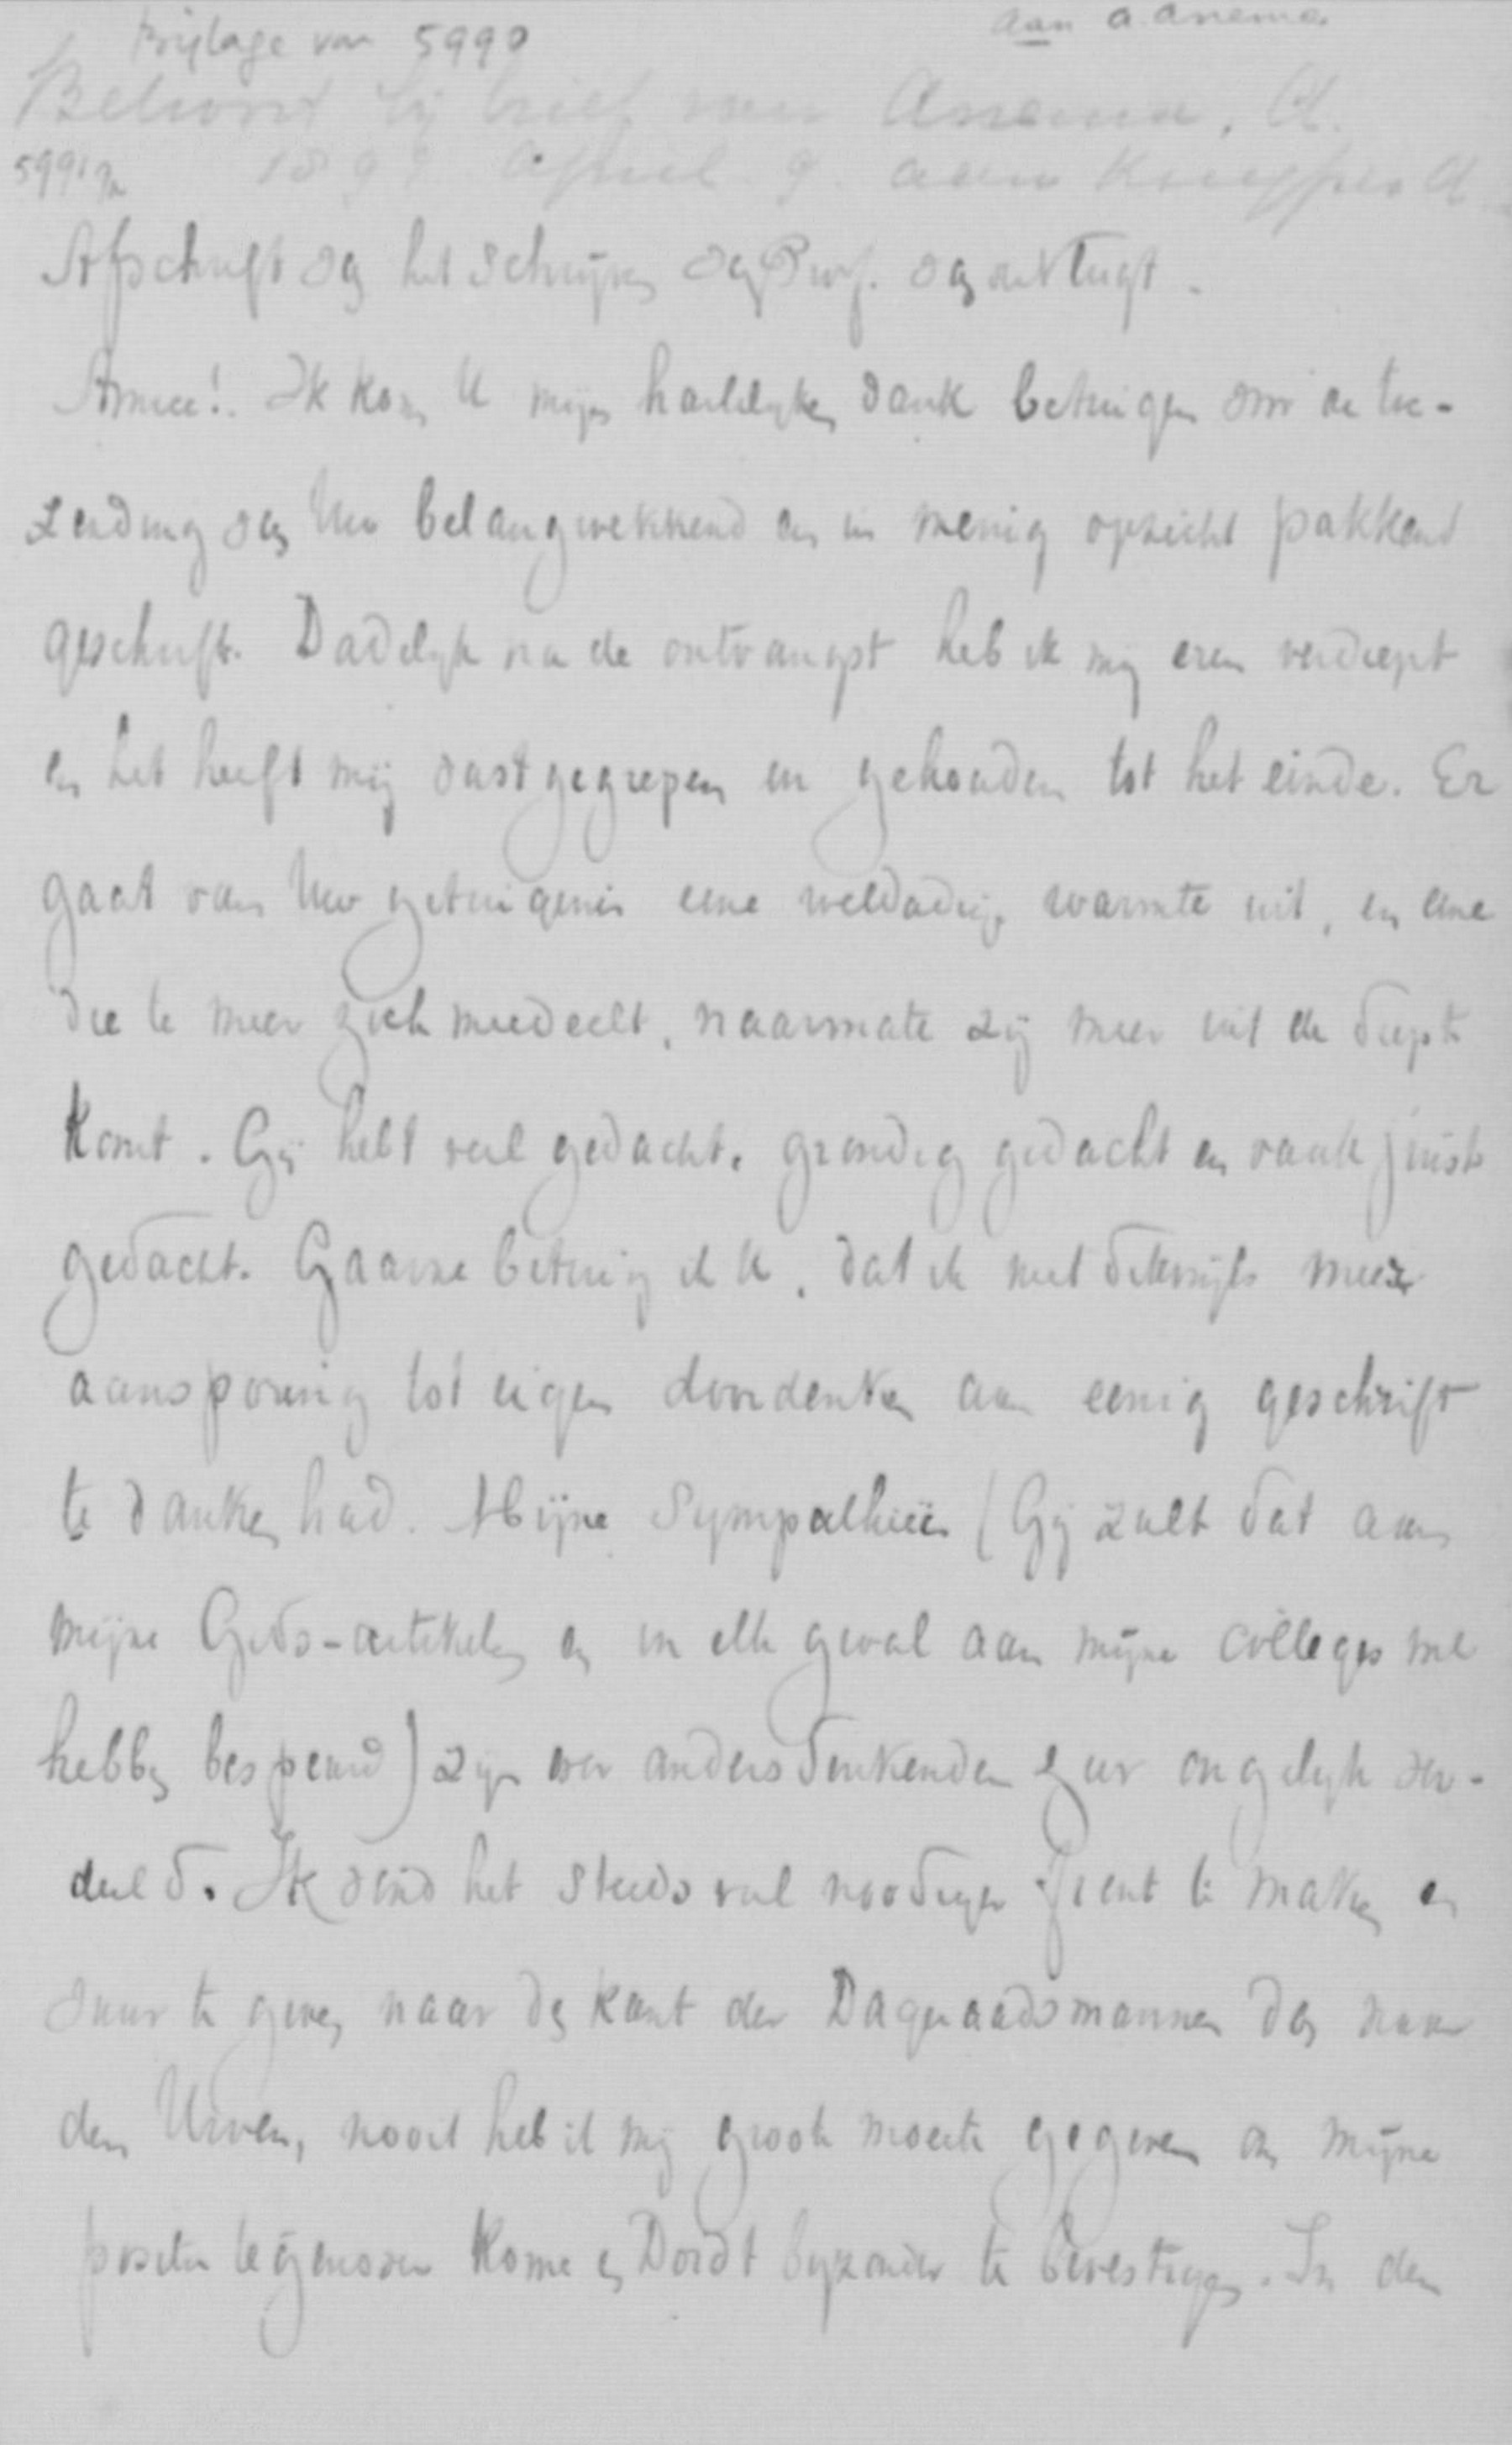 Bijlage van 5990
aan A. Anema
Behoort bij brief van Anema, A.
5991a 1897 April 9. aan Kuyper A.
Afschrift v. h. schrijven v. Prof. v. der Vlugt.
Amice! Ik kom U mijn hartelijken dank betuigen voor de toe-
zending van Uw belangwekkend en in menig opzicht pakkend
geschrift. Dadelijk na de ontvangst heb ik mij erin verdiept
en het heeft mij vastgegrepen en gehouden tot het einde. Er
gaat van Uw getuigenis eene weldadige warmte uit, en eene
die te meer zich meedeelt, naarmate zij meer uit de diepte
komt. Gij hebt veel gedacht, grondig gedacht en vaak juist
gedacht. Gaarne betuig ik U, dat ik niet dikwijls meer
aansporing tot eigen doordenken aan eenig geschrift
te danken had. Mijne sympathieën (Gij zult dat aan
mijne Gids-artikelen en in elk geval aan mijne colleges wel
hebben bespeurd) zijn over andersdenkenden zeer ongelijk ver-
deeld. Ik vind het steeds veel noodiger front te maken en
vuur te geven naar den kant der Dageraadsmannen dan naar
den Uwen, nooit heb ik mij groote moeite gegeven om mijne
positie tegenover Rome en Dordt bijzonder te bevestigen. In den